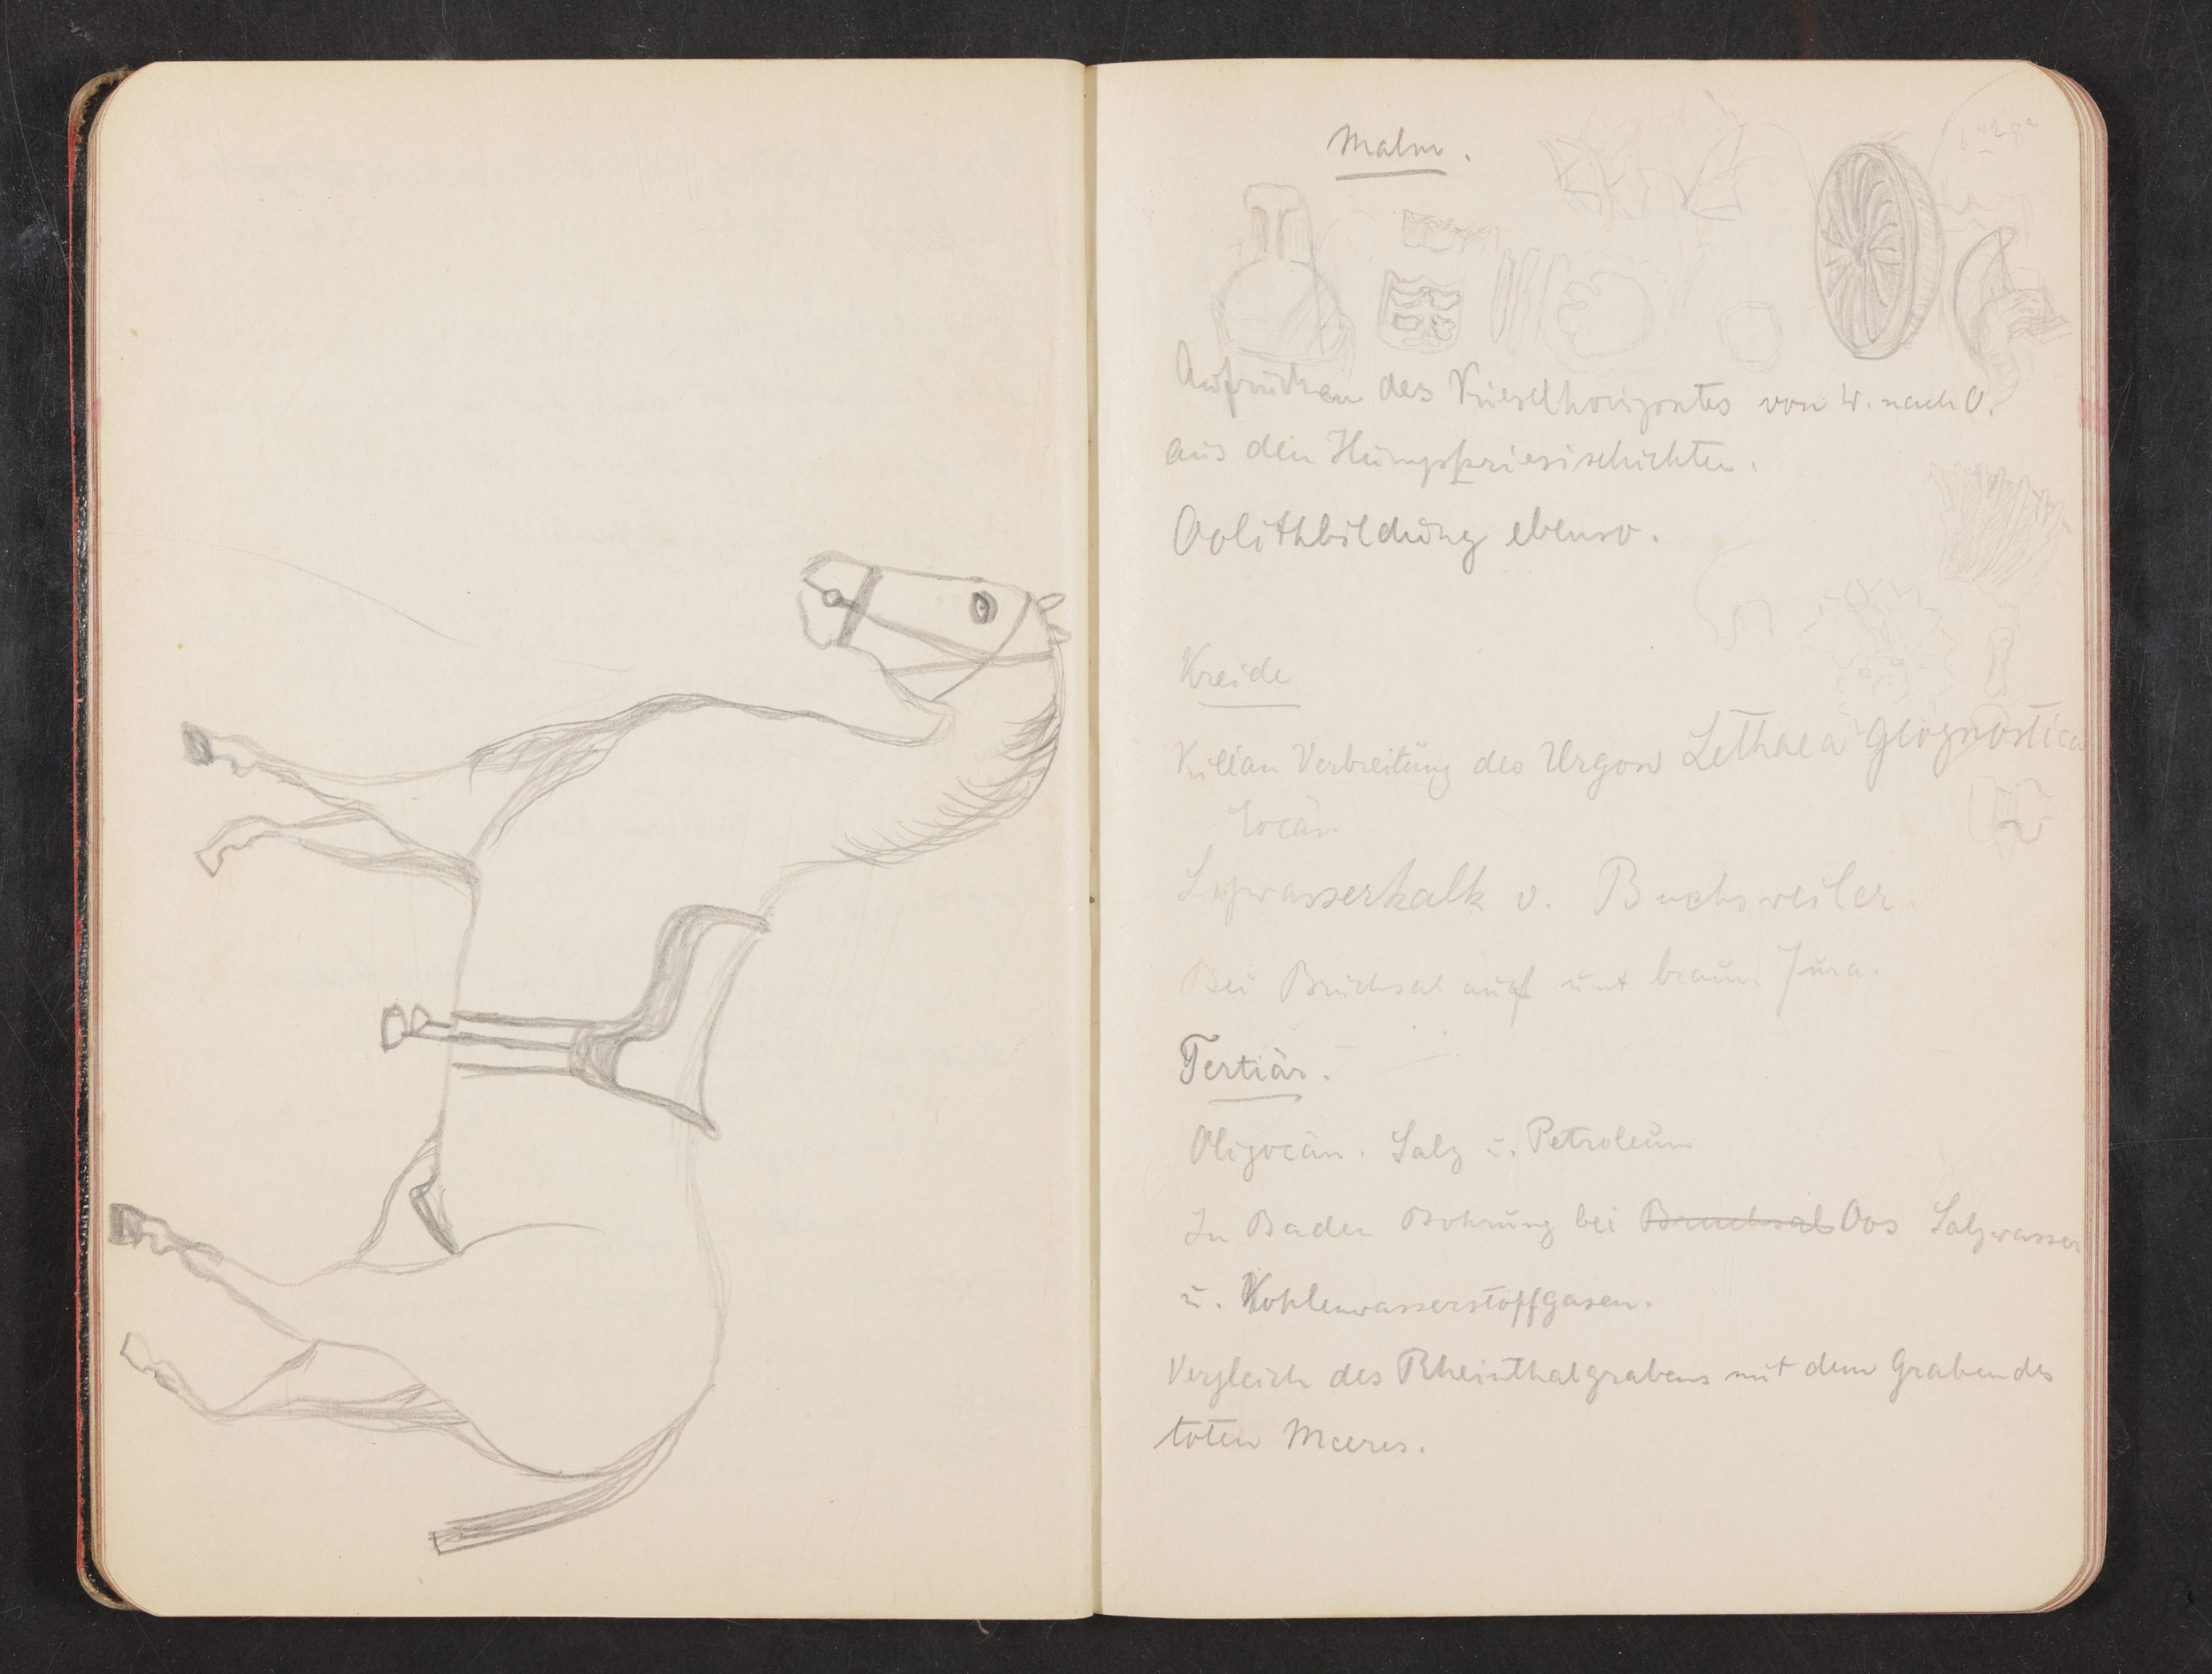 Malm.
Aufrücken des Kieselhorizontes von W. nach O.
aus den Humphriesischichten.
Oolithbildung ebenso.
Kreide
Kilian Verbreitung des Urgon Lethaea geognostica
Eocän
Süßwasserkalk v. Buchsweiler.
Bei Bruchsal auf unt braun. Jura.
Tertiär.
Oligocän. Salz u. Petroleum
In Baden Bohrung bei Bruchsal Oos Salzwasser
u. Kohlenwasserstoffgasen.
Vergleich des Rheinthalgrabens mit dem Graben des
toten Meeres.